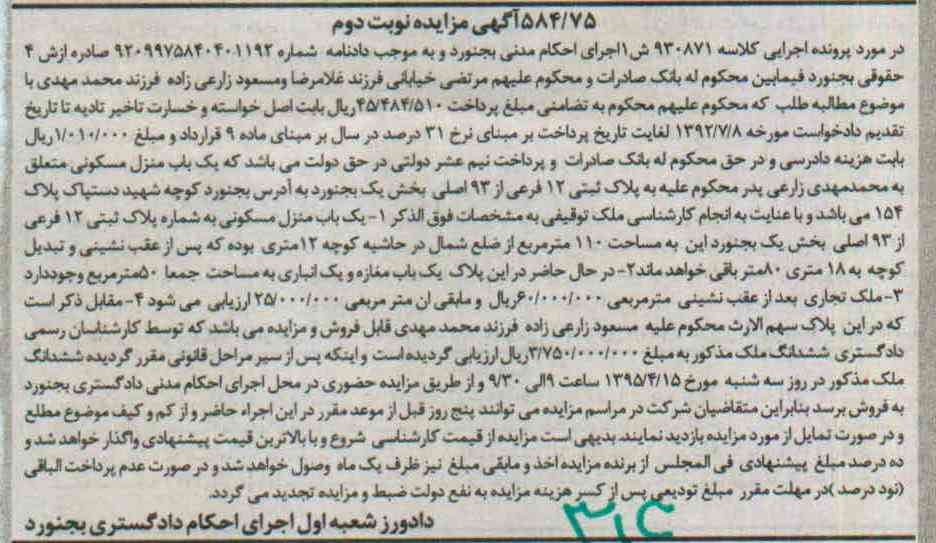 ۵۸۴/۷۵آگهی مزایده نوبت دوم
در مورد پرونده اجرایی کلاسه ۹۳۰۸۷۱ ش۱اجرای احکام مدنی بجنورد و به موجب دادنامه شماره ۹۲۰۹۹۷۵۸۴۰۴۰۱۱۹۲ صادره ازش ۴
حقوقی بجنورد فیمابین محکوم له بانک صادرات و محکوم علیهم مرتضی خیابانی فرزند غلامرضا ومسعود زارعی زاده فرزند محمد مهدی با
موضوع مطالبه طلب که محکوم علیهم محکوم به تضامنی مبلغ پرداخت ۴۵/۴۸۴/۵۱۰ریال بابت اصل خواسته و خسارت تاخیر تادیه تا تاریخ
تقدیم دادخواست مورخه ۱۳۹۲/۷/۸ لغایت تاریخ پرداخت بر مبنای نرخ ۳۱ درصد در سال بر مبنای ماده ۹ قرارداد و مبلغ ۱/۰۱۰/۰۰۰ریال
بابت هزینه دادرسی و در حق محکوم له بانک صادرات و پرداخت نیم عشر دولتی در حق دولت می باشد که یک باب منزل مسکونی متعلق
به محمدمهدی زارعی پدر محکوم علیه به پلاک ثبتی ۱۲ فرعی از ۹۳ اصلی بخش یک بجنورد به آدرس بجنورد کوچه شهید دستپاک پلاک
۱۵۴ می باشد و با عنایت به انجام کارشناسی ملک توقیفی به مشخصات فوق الذکر ۱- یک باب منزل مسکونی به شماره پلاک ثبتی ۱۲ فرعی
از ۹۳ اصلی بخش یک بجنورد این به مساحت ۱۱۰ مترمربع از ضلع شمال در حاشیه کوچه ۱۲متری بوده که پس از عقب نشینی و تبدیل
کوچه به ۱۸ متری ۸۰متر باقی خواهد ماند۲- در حال حاضر در این پلاک یک باب مغازه و یک انباری به مساحت جمعا ۵۰مترمربع وجوددارد
۳-ملک تجاری بعد از عقب نشینی مترمربعی ۶۰/۰۰۰/۰۰۰ریال و مابقی ان متر مربعی ۲۵/۰۰۰/۰۰۰ ارزیابی می شود ۴-مقابل ذکر است
که در این پلاک سهم الارث محکوم علیه مسعود زارعی زاده فرزند محمد مهدی قابل فروش و مزایده می باشد که توسط کارشناسان رسمی
دادگستری ششدانگ ملک مذکور به مبلغ ۳/۷۵۰/۰۰۰/۰۰۰ریال ارزیابی گردیده است و اینکه پس از سیر مراحل قانونی مقرر گردیده ششدانگ
ملک مذکور در روز سه شنبه مورخ ۱۳۹۵/۴/۱۵ ساعت ۹الی ۹/۳۰ و از طریق مزایده حضوری در محل اجرای احکام مدنی دادگستری بجنورد
به فروش برسد بنابراین متقاضیان شرکت در مراسم مزایده می توانند پنج روز قبل از موعد مقرر در این اجراء حاضر و از کم و کیف موضوع مطلع
و در صورت تمایل از مورد مزایده بازدید نمایند. بدیهی است مزایده از قیمت کارشناسی شروع و با بالاترین قیمت پیشنهادی واگذار خواهد شد و
ده درصد مبلغ پیشنهادی فی المجلس از برنده مزایده اخذ و مابقی مبلغ نیز ظرف یک ماه وصول خواهد شد و در صورت عدم پرداخت الباقی
(نود درصد )در مهلت مقرر مبلغ تودیعی پس از کسر هزینه مزایده به نفع دولت ضبط و مزایده تجدید می گردد.
دادورز شعبه اول اجرای احکام دادگستری بجنورد